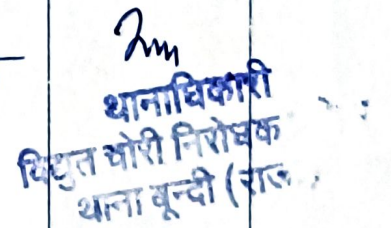 थानाधिकारी
विद्युत चोरी निरोधक
थाना बून्दी (राज.